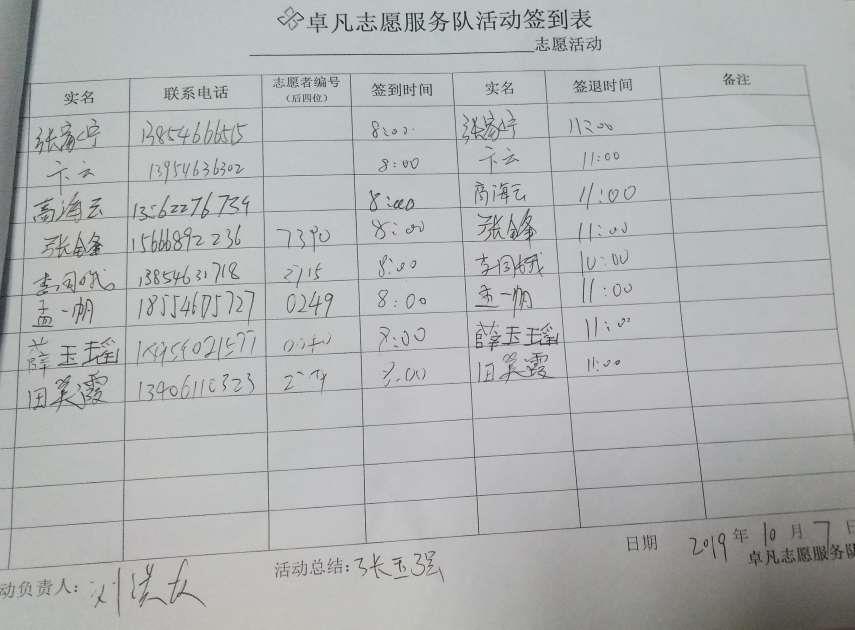 卓凡志愿服务队活动签到表
志愿活动
实名 联系电话 志愿者编号（后四位） 签到时间 实名 签退时间 备注
张富宁 13854666515 8:00 张富宁 11:00
卞云 13954636302 8:00 卞云 11:00
高海云 13562276734 8:00 高海云 11:00
张金峰 15666892236 7390 8:00 张金峰 11:00
13854631718 2715 8:00 10:00
孟一帆 18554675727 0249 8:00 孟一帆 11:00
薛玉瑶 8:00 薛玉瑶 11:00
田笑霞 13406110323 8:00 田笑霞 11:00
日期 2019年10月7日
动负责人： 活动总结：张玉强
卓凡志愿服务队